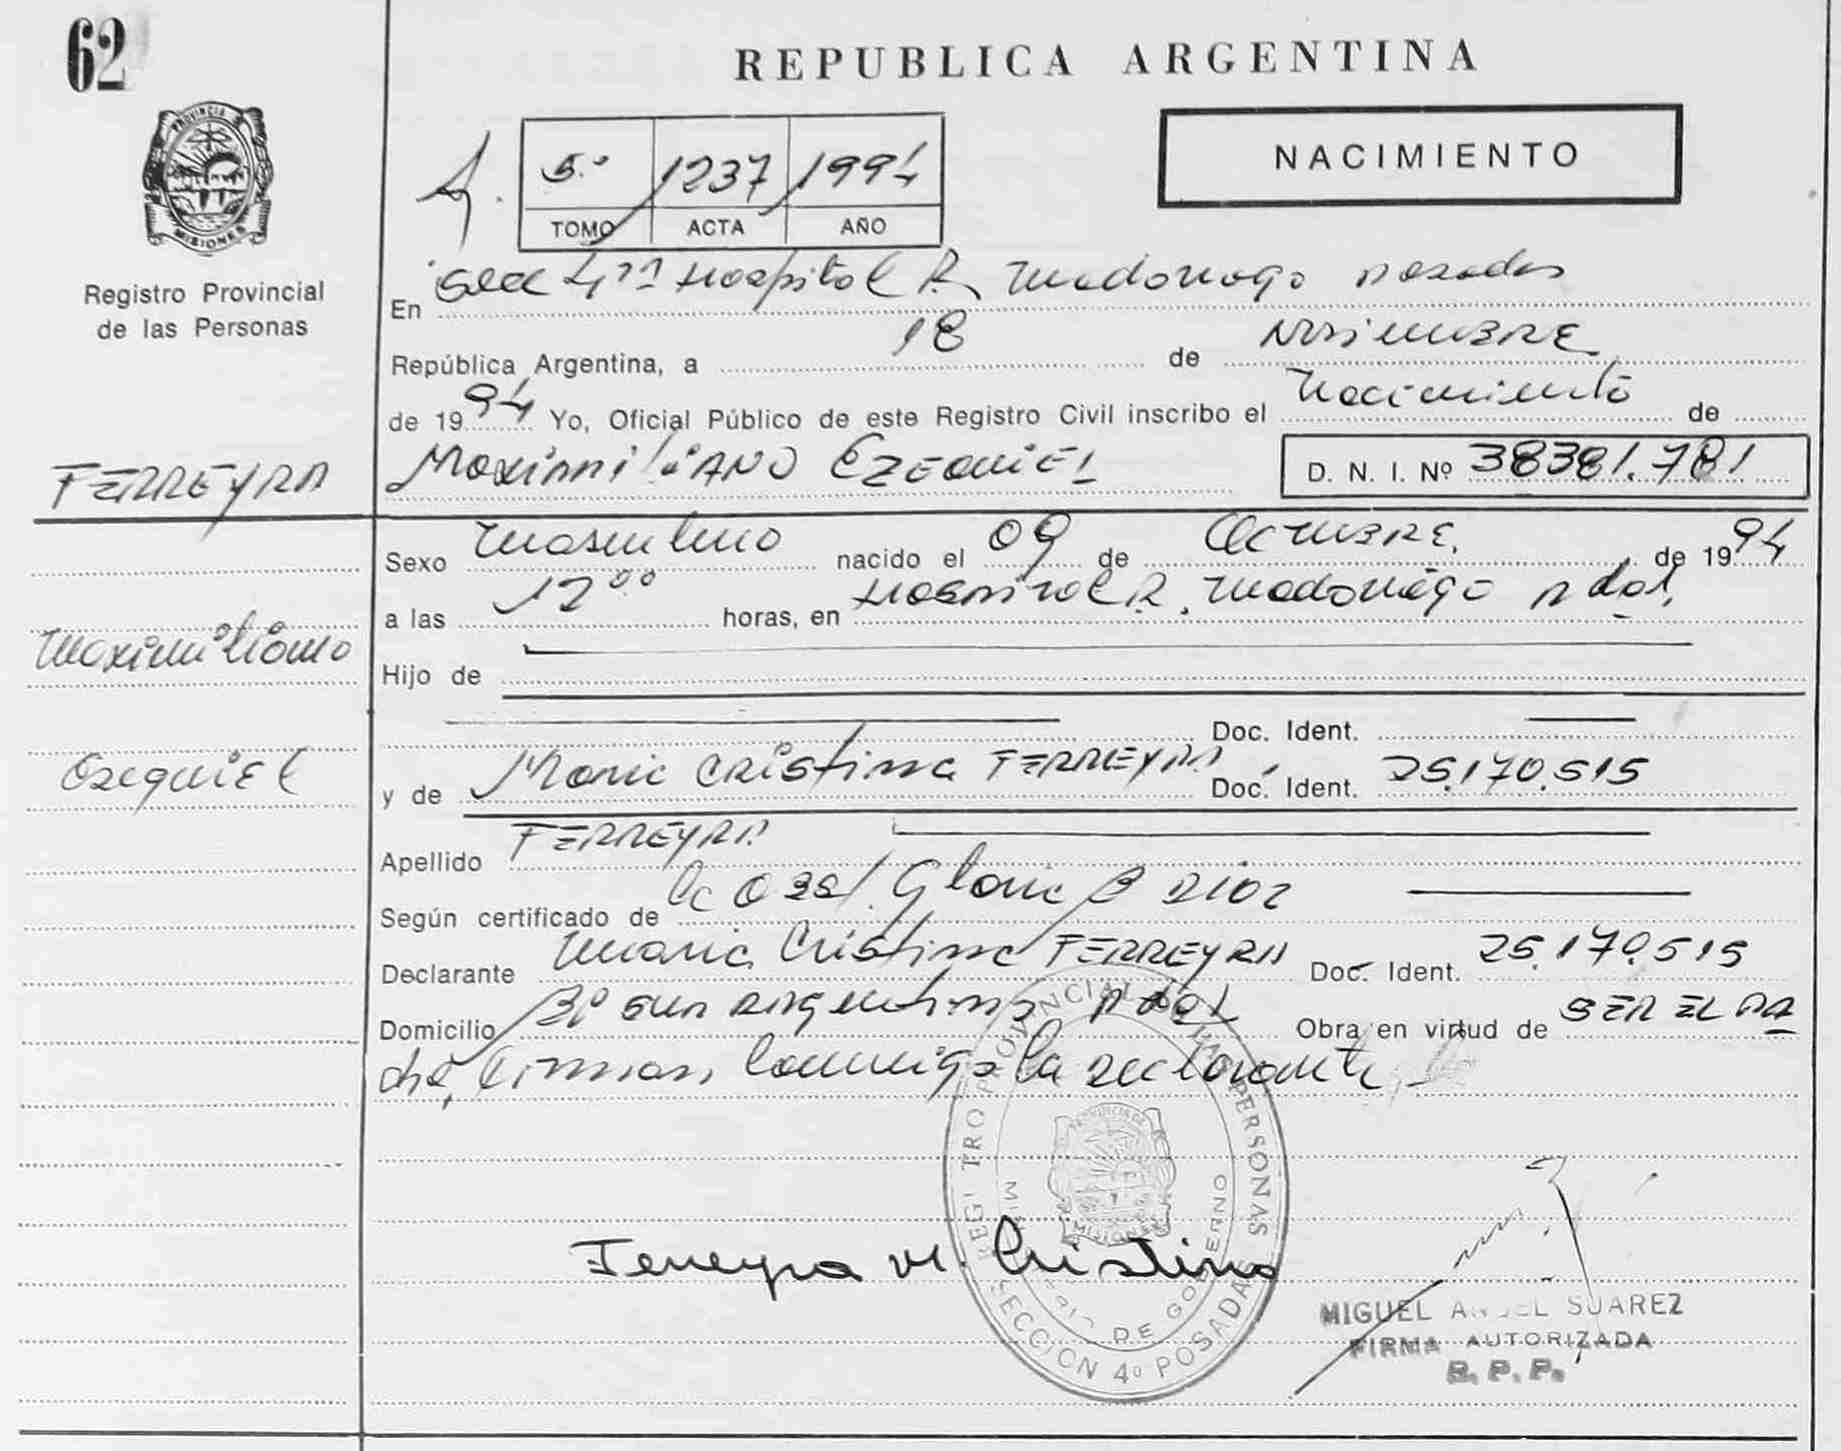 62
REPUBLICA ARGENTINA
PROVINCIA DE
MISIONES
Registro Provincial
de las Personas
5.º 1237 1994
TOMO ACTA AÑO
NACIMIENTO
En Secc 4ta Hospital R. Madariaga Posadas
República Argentina, a 18 de Noviembre
de 1994 Yo, Oficial Público de este Registro Civil inscribo el Nacimiento de
FERREYRA Maximiliano Ezequiel D. N. I. Nº 38381.781
Sexo Masculino nacido el 09 de Octubre de 1994
a las 12⁰⁰ horas, en Hospital R. Madariaga Pdas.
Maximiliano
Hijo de
Doc. Ident.
Ezequiel
y de Maria Cristina FERREYRA Doc. Ident. 25.170.515
Apellido FERREYRA
Según certificado de la Obst. Gloria B Diaz
Declarante Maria Cristina FERREYRA Doc. Ident. 25.170.515
Domicilio Bº Sur Argentino Pdas Obra en virtud de SER EL MA
dre, Firman conmigo la declarante
REGISTRO PROVINCIAL DE LAS PERSONAS
PROVINCIA DE
MISIONES
DE GOBIERNO
SECCION 4º POSADAS
Ferreyra M. Cristina
MIGUEL ANGEL SUAREZ
FIRMA AUTORIZADA
R. P. P.